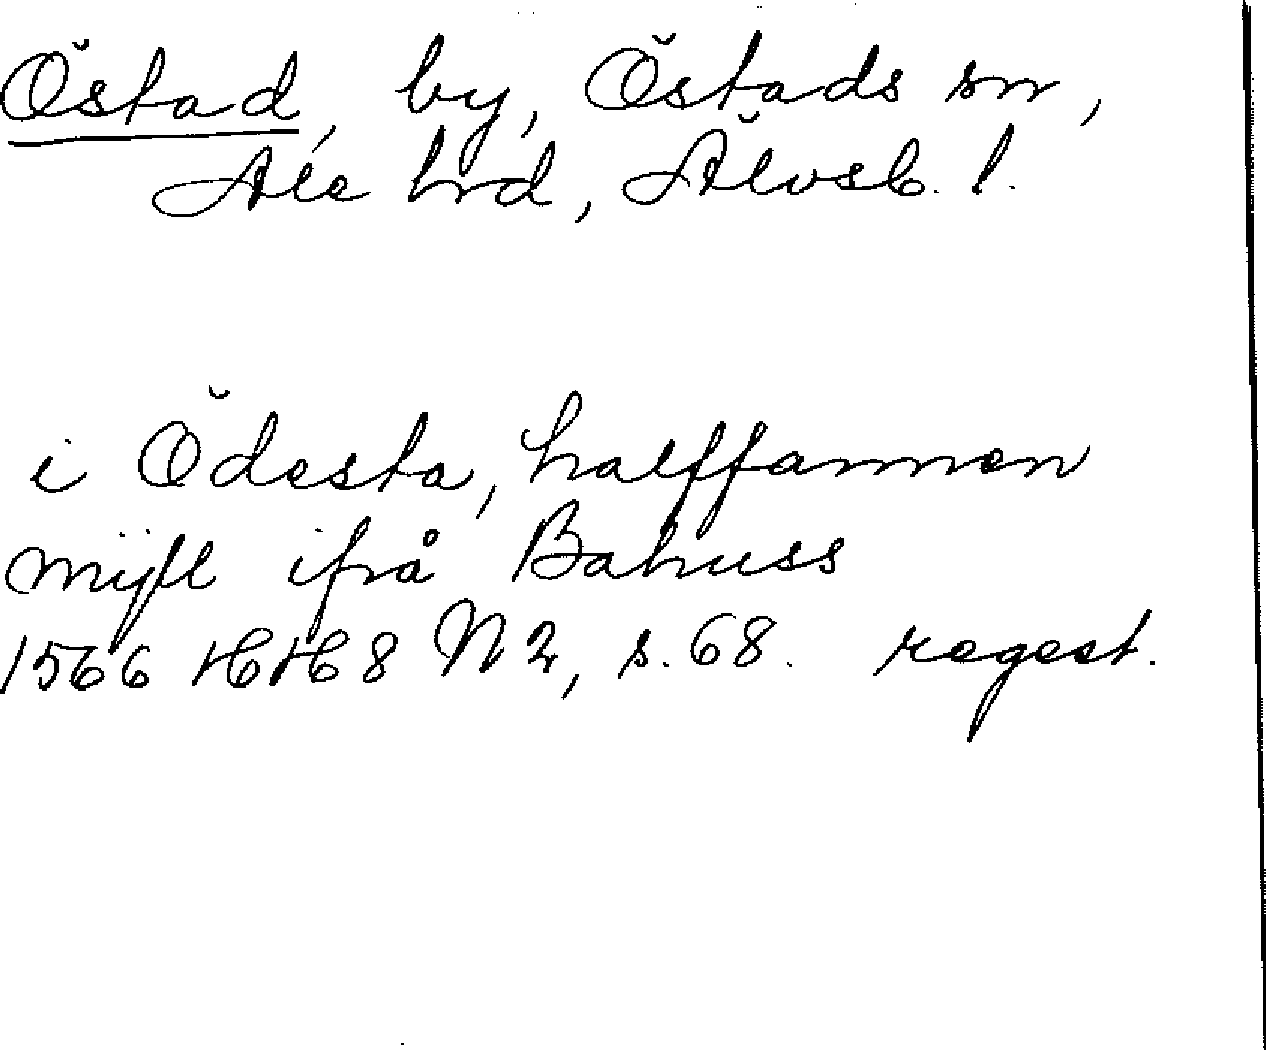 Östad, by, Östads sn,
Ale hrd, Älvsb. l.
i Ödesta, halffannen
mijll ifrå Bahuss
1566 HH8 N 2, s. 68. regest.